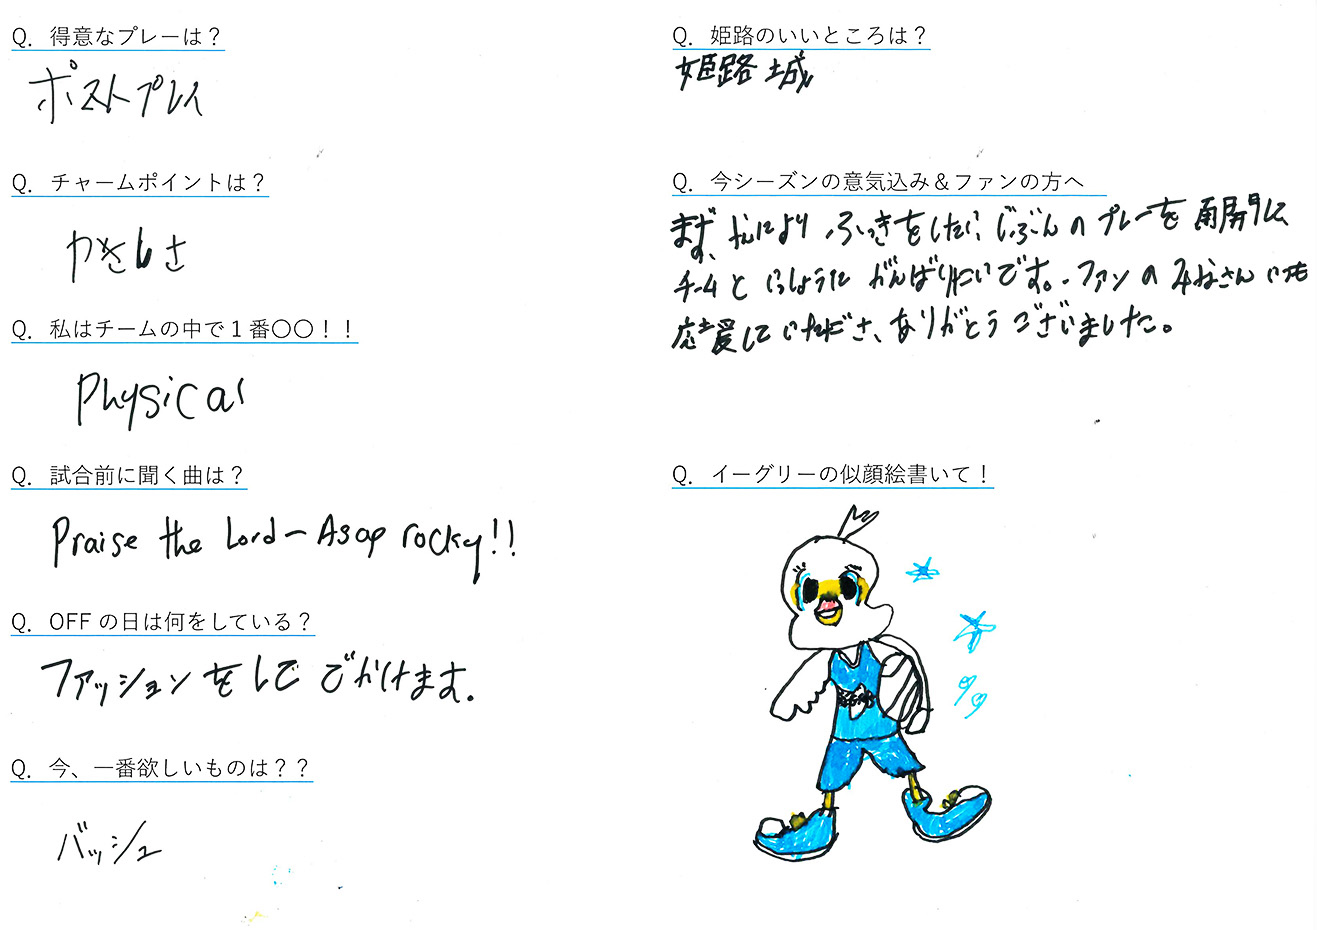 Q. 得意なプレーは？
ポストプレイ
Q. チャームポイントは？
やさしさ
Q. 私はチームの中で１番〇〇！！
Physical
Q. 試合前に聞く曲は？
Praise the Lord – Asap rocky!!
Q. OFF の日は何をしている？
ファッションをしてでかけます。
Q. 今、一番欲しいものは？？
バッシュ
Q. 姫路のいいところは？
姫路城
Q. 今シーズンの意気込み＆ファンの方へ
まず、なにより ふっきをしたら、じぶんのプレーを再開し
チームといっしょうに がんばりたいです。ファンのみなさんいつも
応援していただき、ありがとうございました。
Q. イーグリーの似顔絵書いて！